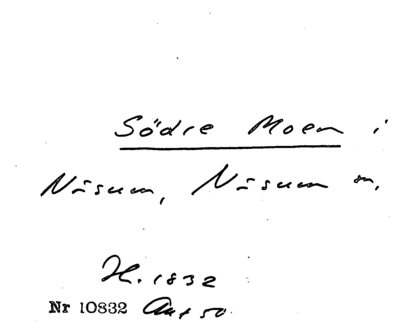 Södre Moen i
Näsum, Näsum sn,
H. 1832
Nr 10832 Ant 50